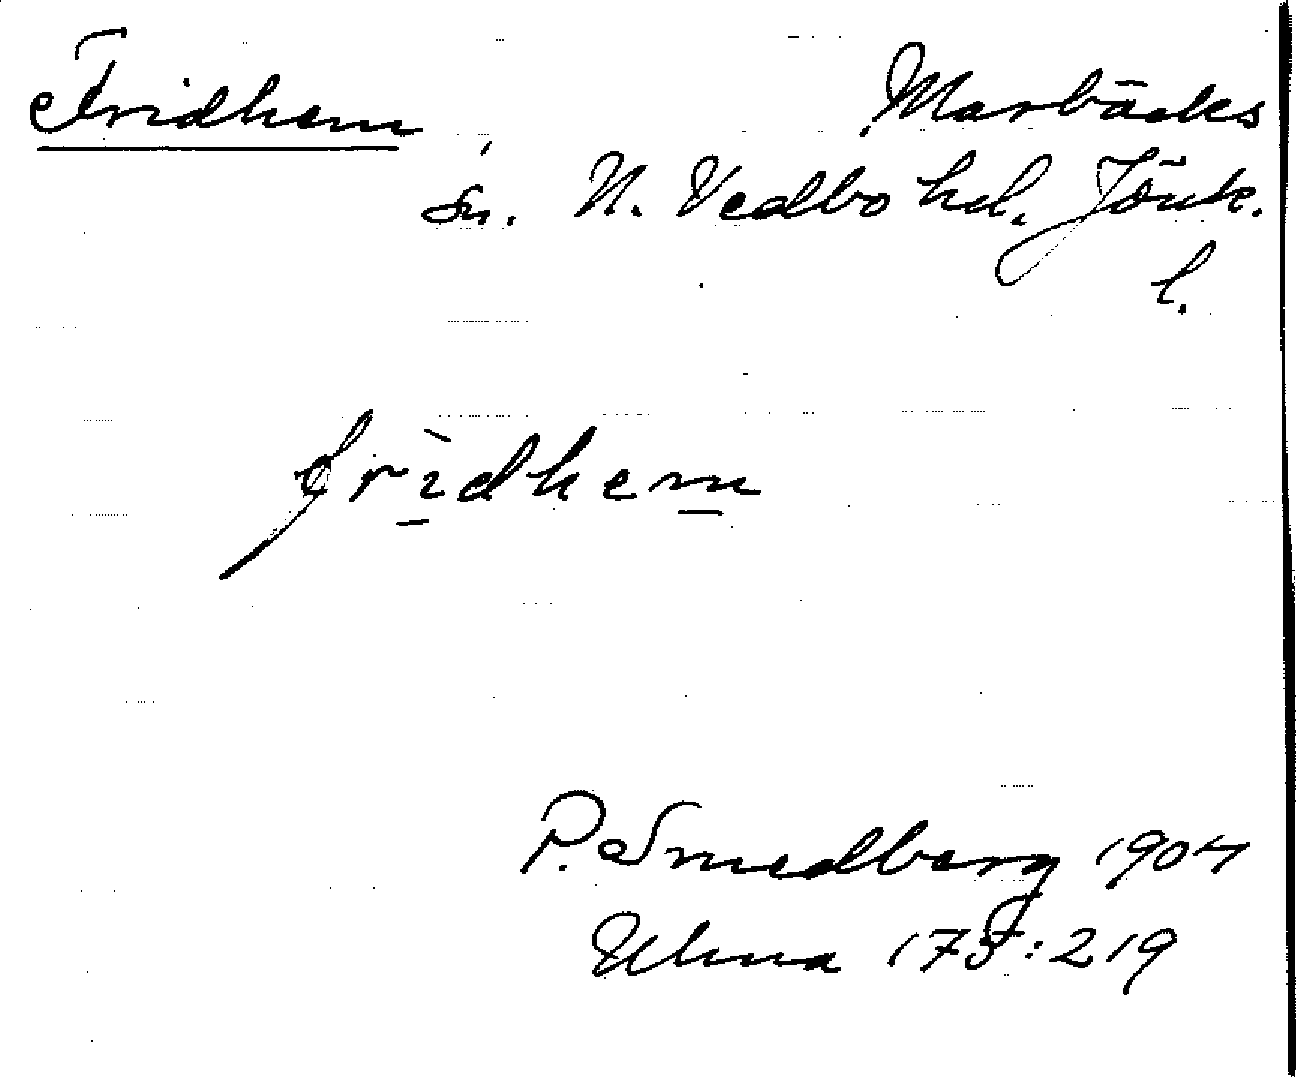 Fridhem Marbäcks
sn. N. Vedbo hd. Jönk.
l.
frìdhem
P. Smedberg 1904
Ulma 175:219